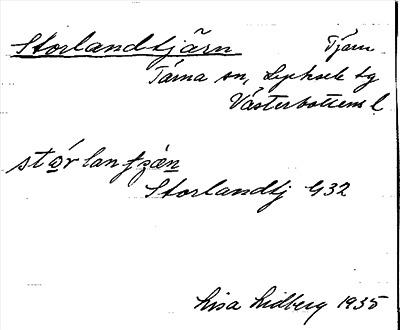 Storlandtjärn Tjärn
Tärna sn, Lycksele tg
Västerbottens l.
stórlanʃzän
Storlandtj G32
Lisa Lidberg 1935